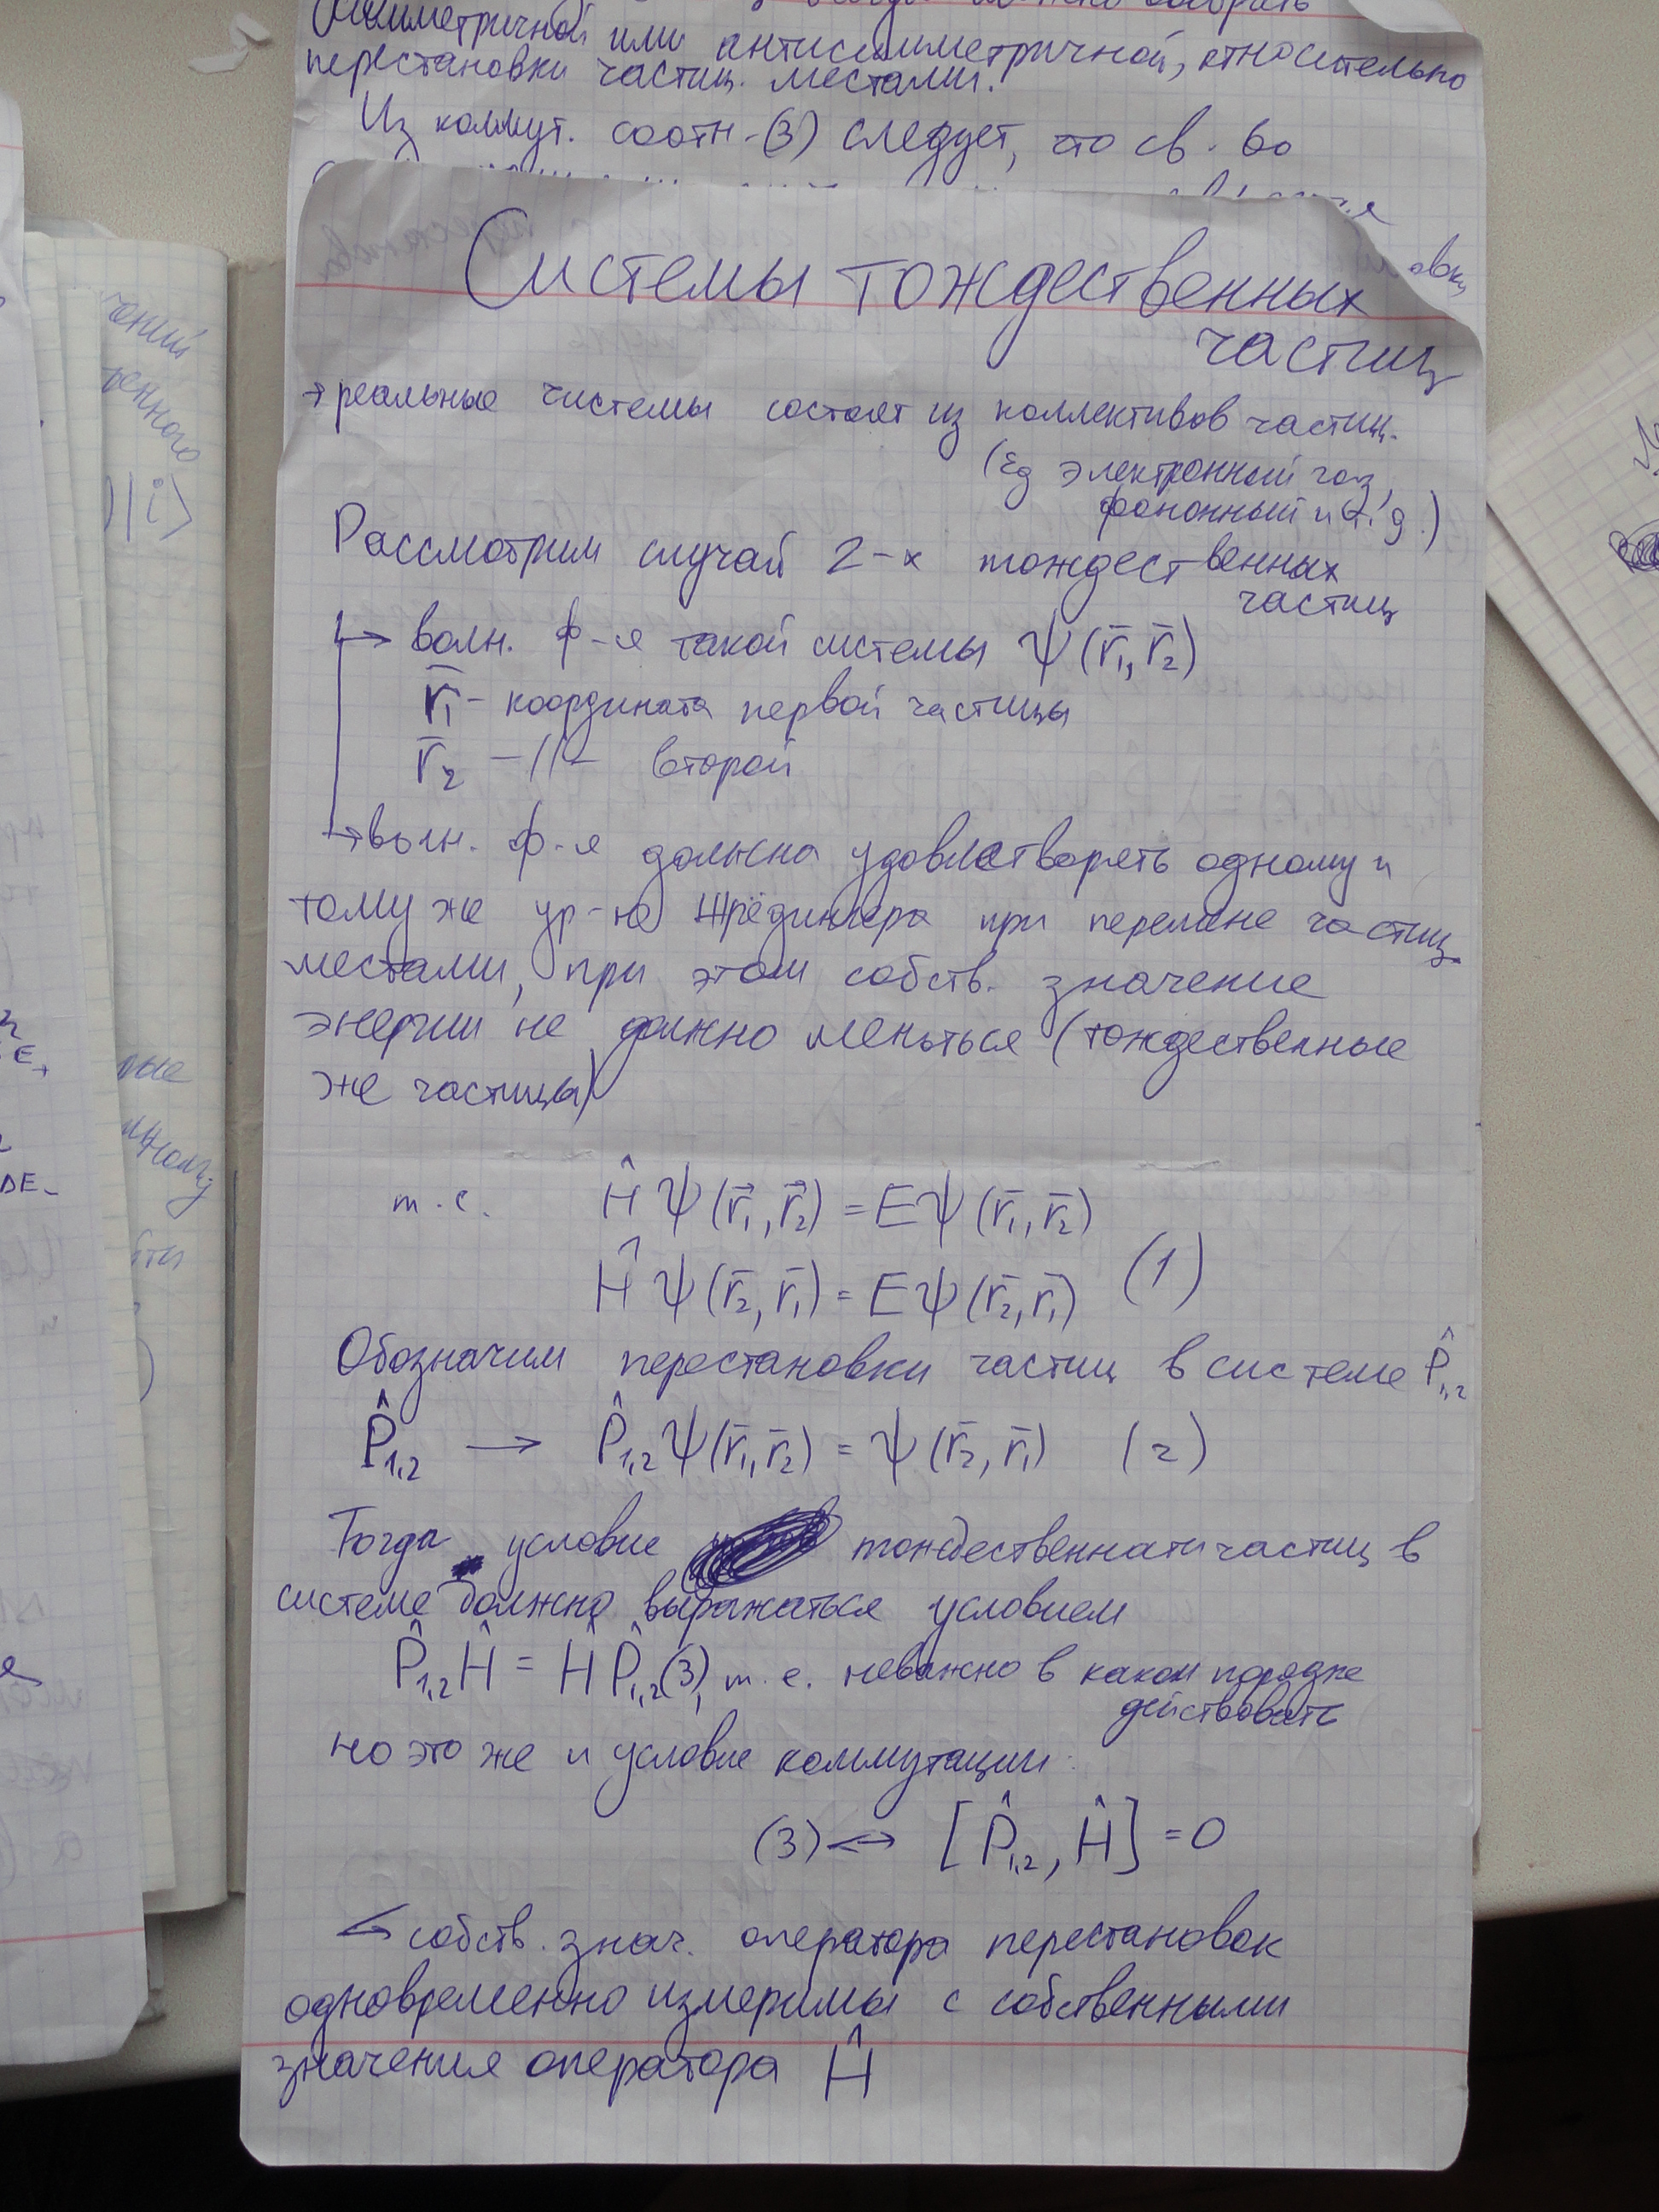 симметричной или антисимметричной, относительно
перестановки частиц местами.
Из коммут. соотн-(3) следует, что св. во
Системы тождественных
частиц
→ реальные системы состоят из коллективов частиц.
(Eg электронный газ,
фононный и т.д.)
Рассмотрим случай 2-х тождественных
частиц
→ волн. ф-я такой системы Ψ(r̄₁, r̄₂)
r̄₁ - координата первой частицы
r̄₂ -//- второй
→ волн. ф-я должна удовлетворять одному и
тому же ур-ю Шрёдингера при перемене частиц
местами, при этом собств. значение
энергии не должно меняться (тождественные
же частицы)
т.е. ĤΨ(r̄₁, r̄₂) = EΨ(r̄₁, r̄₂)
ĤΨ(r̄₂, r̄₁) = EΨ(r̄₂, r̄₁) (1)
Обозначим перестановки частиц в системе P̂₁,₂
P̂₁,₂ → P̂₁,₂Ψ(r̄₁, r̄₂) = Ψ(r̄₂, r̄₁) (2)
Тогда условие тождественнати частиц в
системе должно выражаться условием
P̂₁,₂Ĥ = ĤP̂₁,₂(3), т.е. неважно в каком порядке
действовать
но это же и условие коммутации:
(3) ↔ [P̂₁,₂, Ĥ] = 0
собств. знач. оператора перестановок
одновременно измеримы с собственными
значения оператора Ĥ
чений
венного
)|i⟩
ные